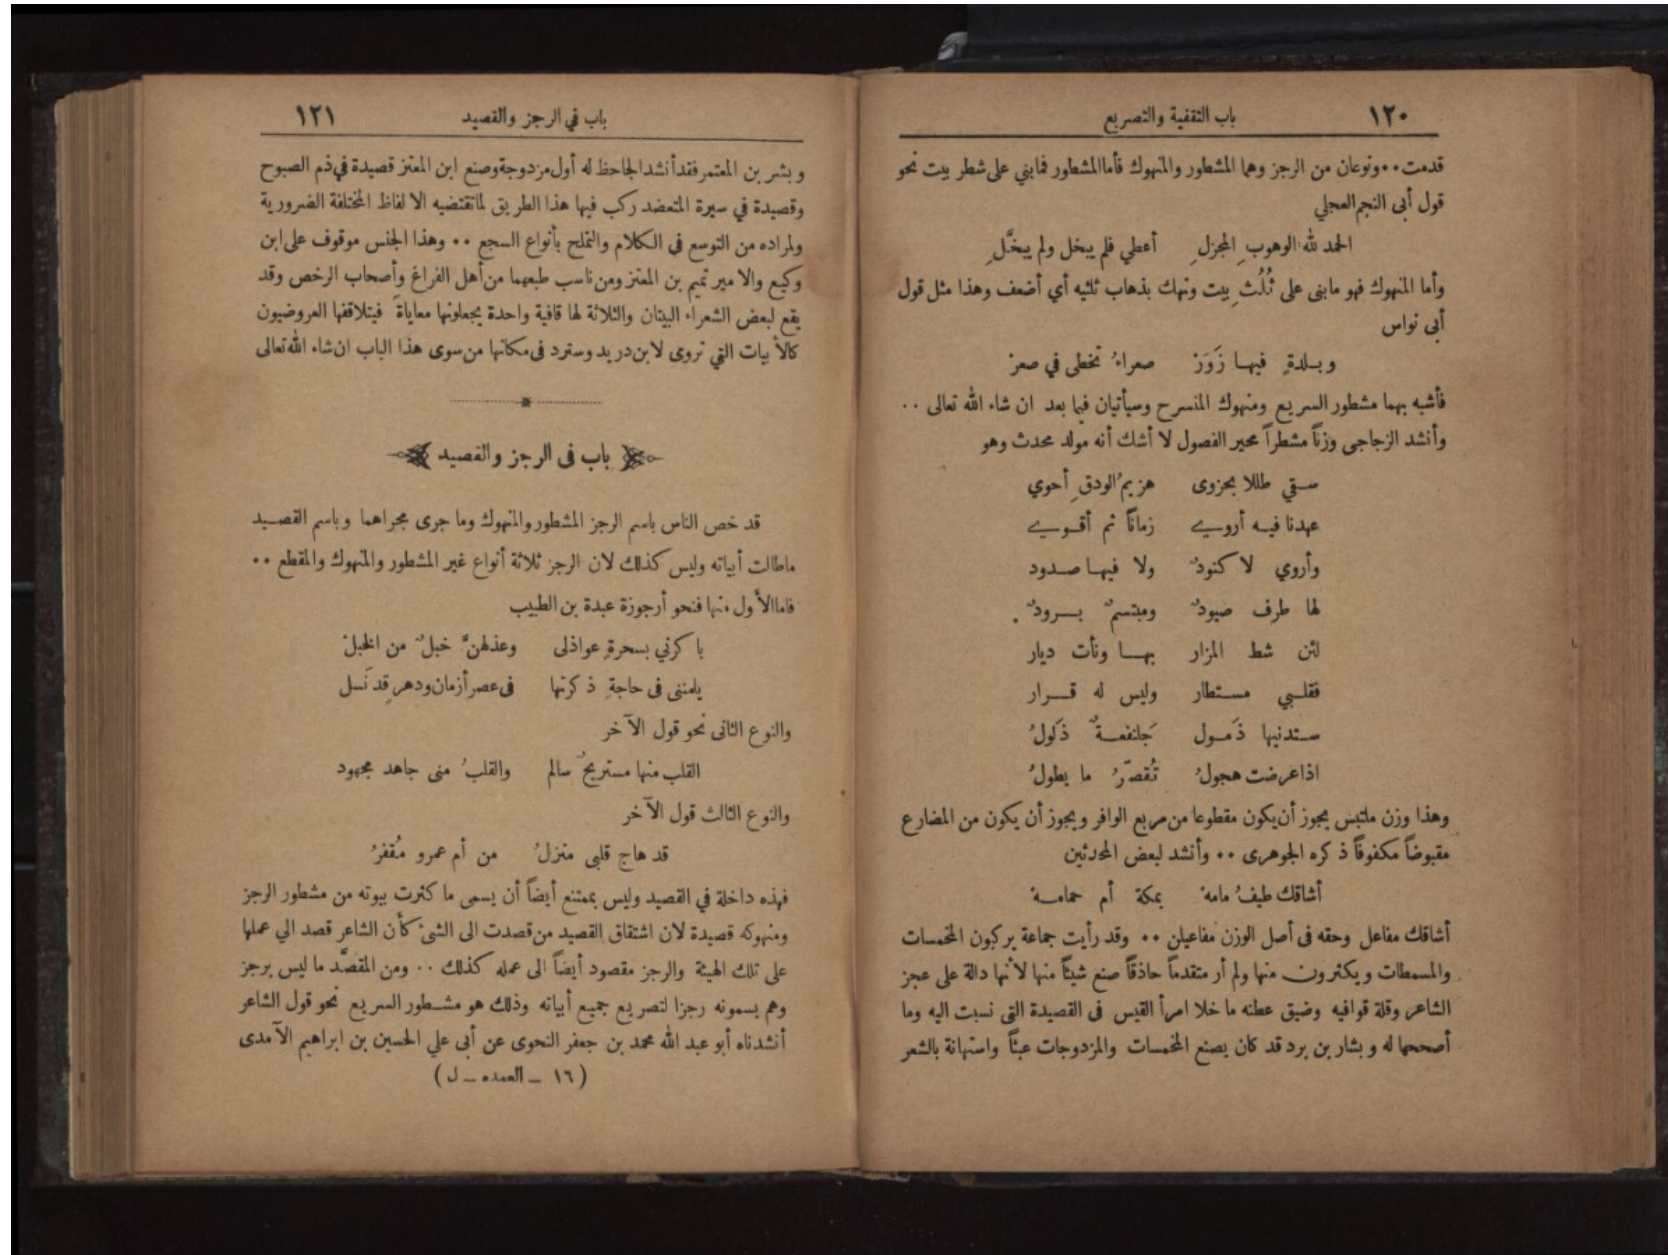 ١٢٠ باب التقفية والتصريع
قدمت ٠٠ ونوعان من الرجز وهما المشطور والمنهوك فأما المشطور فما بني على شطر بيت نحو
قول أبى النجم العجلي
الحمد لله الوهوبِ المجزلِ أعطي فلم يبخل ولم يبخَّلِ
وأما المنهوك فهو ما بنى على ثُلُثِ بيت ونهك بذهاب ثلثيه أي أضعف وهذا مثل قول
أبى نواس
وبلدةٍ فيها زَوَرْ صعراءُ تخطى في صعرْ
فأشبه بهما مشطور السريع ومنهوك المنسرح وسيأتيان فيما بعد ان شاء الله تعالى ٠٠
وأنشد الزجاجى وزناً مشطراً محير الفصول لا أشك أنه مولد محدث وهو
سقي طللا بحزوى هزيمُ الودقِ أحوي
عهدنا فيه أروي زماناً ثم أقوي
وأروي لا كنودٌ ولا فيها صدود
لها طرف صيودٌ ومبتسمٌ برودٌ
لئن شط المزار بها ونأت ديار
فقلبي مستطار وليس له قرار
ستدنيها ذَمول جَلنفعةٌ ذَلولُ
اذا عرضت هجولُ تُقصّرُ ما يطولُ
وهذا وزن ملتبس يجوز أن يكون مقطوعا من مربع الوافر ويجوز أن يكون من المضارع
مقبوضاً مكفوفاً ذكره الجوهرى ٠٠ وأنشد لبعض المحدثين
أشاقك طيفُ مامهْ بمكة أم حمامه
أشاقك مفاعل وحقه فى أصل الوزن مفاعيلن ٠٠ وقد رأيت جماعة يركبون المخمسات
والمسمطات ويكثرون منها ولم أر متقدماً حاذقاً صنع شيئاً منها لأنها دالة على عجز
الشاعر وقلة قوافيه وضيق عطنه ما خلا امرأ القيس فى القصيدة التى نسبت اليه وما
أصححها له وبشار بن برد قد كان يصنع المخمسات والمزدوجات عبثاً واستهانة بالشعر
باب في الرجز والقصيد ١٢١
وبشر بن المعتمر فقد أنشد الجاحظ له أول مزدوجة وصنع ابن المعتز قصيدة في ذم الصبوح
وقصيدة في سيرة المعتضد ركب فيها هذا الطريق لما تقتضيه الالفاظ المختلفة الضرورية
ولمراده من التوسع في الكلام والتملح بأنواع السجع ٠٠ وهذا الجنس موقوف على ابن
وكيع والامير تميم بن المعتز ومن ناسب طبعهما من أهل الفراغ وأصحاب الرخص وقد
يقع لبعض الشعراء البيتان والثلاثة لها قافية واحدة يجعلونها معاياةً فيتلاقفها العروضيون
كالأبيات التي تروى لابن دريد وسترد فى مكانها من سوى هذا الباب ان شاء الله تعالى
باب فى الرجز والقصيد
قد خص الناس باسم الرجز المشطور والمنهوك وما جرى مجراهما وباسم القصيد
ماطالت أبياته وليس كذلك لان الرجز ثلاثة أنواع غير المشطور والمنهوك والمقطع ٠٠
فاما الأول منها فنحو أرجوزة عبدة بن الطبيب
باكرني بسحرةٍ عواذلى وعذلهنَّ خبلٌ من الخبلْ
يلمننى فى حاجةٍ ذكرتها فى عصر أزمان ودهرٍ قد نَسل
والنوع الثانى نحو قول الآخر
القلب منها مستريحٌ سالم والقلبُ منى جاهد مجهود
والنوع الثالث قول الآخر
قد هاج قلبى منزلُ من أم عمرو مُقفرُ
فهذه داخلة في القصيد وليس بممتنع أيضاً أن يسمى ما كثرت بيوته من مشطور الرجز
ومنهوكه قصيدة لان اشتقاق القصيد من قصدت الى الشئ كأن الشاعر قصد الي عملها
على تلك الهيئة والرجز مقصود أيضاً الى عمله كذلك ٠٠ ومن المقصَّد ما ليس برجز
وهم يسمونه رجزا لتصريع جميع أبياته وذلك هو مشطور السريع نحو قول الشاعر
أنشدناه أبو عبد الله محمد بن جعفر النحوى عن أبى علي الحسين بن ابراهيم الآمدى
( ١٦ ـ العمده ـ ل )